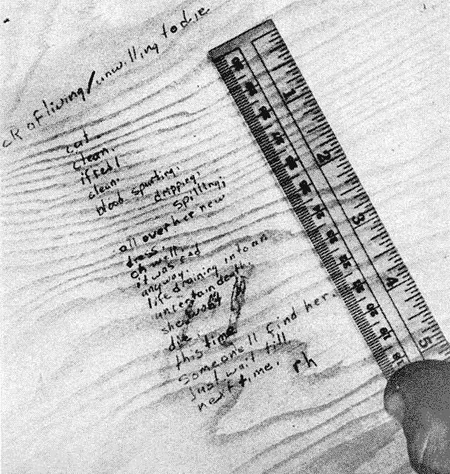 ck of living/unwilling to die
cut.
clean.
if red/
clean.
blood spurting,
dripping,
spilling;
all over her new
dress.
oh well
it was red
anyway.
life draining into an
uncertain death.
she won't
die
this time
someone ll find her.
just wait till
next time.
rh
1
2
3
4
5